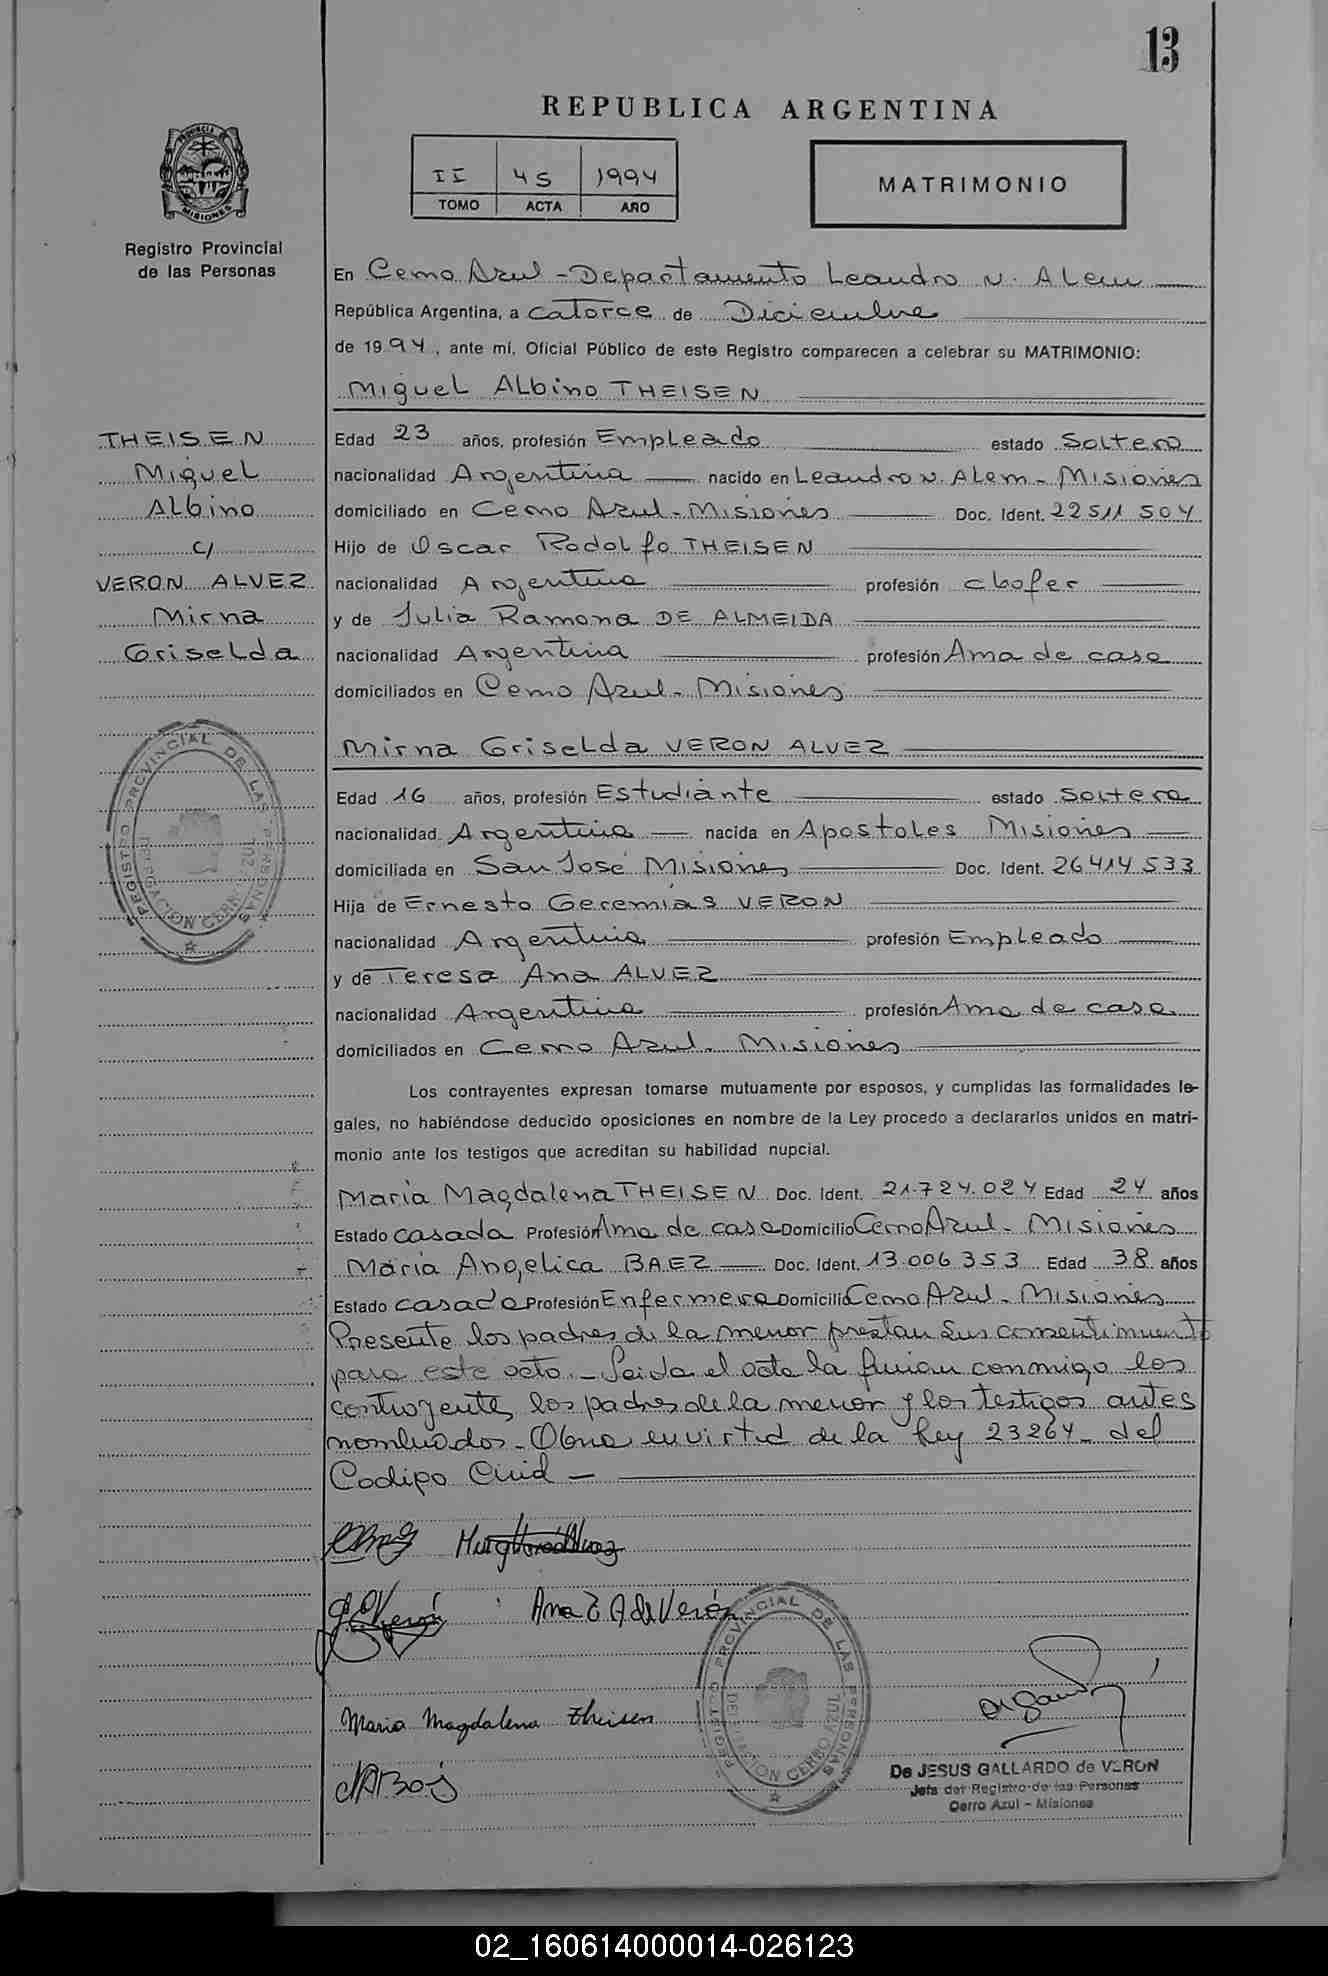 13
REPUBLICA ARGENTINA
II 45 1994
TOMO ACTA AÑO
MATRIMONIO
PROVINCIA DE MISIONES
Registro Provincial
de las Personas
En Cerro Azul - Departamento Leandro N. Alem
República Argentina, a catorce de Diciembre
de 1994, ante mí, Oficial Público de este Registro comparecen a celebrar su MATRIMONIO:
Miguel Albino THEISEN
THEISEN
Miguel
Albino
c/
VERON ALVEZ
Mirna
Griselda
Edad 23 años, profesión Empleado estado Soltero
nacionalidad Argentina nacido en Leandro N. Alem - Misiones
domiciliado en Cerro Azul - Misiones Doc. Ident. 22511504
Hijo de Oscar Rodolfo THEISEN
nacionalidad Argentina profesión chofer
y de Julia Ramona DE ALMEIDA
nacionalidad Argentina profesión Ama de casa
domiciliados en Cerro Azul - Misiones
Mirna Griselda VERON ALVEZ
Edad 16 años, profesión Estudiante estado Soltera
nacionalidad Argentina nacida en Apostoles Misiones
domiciliada en San José Misiones Doc. Ident. 26414533
Hija de Ernesto Geremías VERON
nacionalidad Argentina profesión Empleado
y de Teresa Ana ALVEZ
nacionalidad Argentina profesión Ama de casa
domiciliados en Cerro Azul - Misiones
Los contrayentes expresan tomarse mutuamente por esposos, y cumplidas las formalidades le-
gales, no habiéndose deducido oposiciones en nombre de la Ley procedo a declararlos unidos en matri-
monio ante los testigos que acreditan su habilidad nupcial.
Maria Magdalena THEISEN Doc. Ident. 21.724.024 Edad 24 años
Estado casada Profesión Ama de casa Domicilio Cerro Azul - Misiones
Maria Angelica BAEZ Doc. Ident. 13.006353 Edad 38 años
Estado casada Profesión Enfermera Domicilio Cerro Azul - Misiones
Presente los padres de la menor prestan sus consentimiento
para este acto. - Leida el acta la firman conmigo los
contrayentes, los padres de la menor y los testigos antes
nombrados - Obra en virtud de la Ley 23264 - del
Codigo Civil -
Ana T A de Verón
Maria Magdalena Theisen
REGISTRO PROVINCIAL DE LAS PERSONAS
DELEGACION CERRO AZUL
REGISTRO PROVINCIAL DE LAS PERSONAS
DELEGACION CERRO AZUL
De JESUS GALLARDO de VERON
Jefa del Registro de las Personas
Cerro Azul - Misiones
02_160614000014-026123